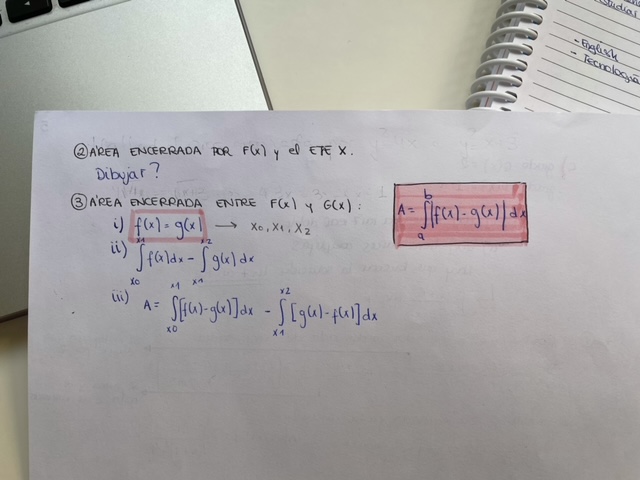 Estudiar
- English
- Tecnología
② ÁREA ENCERRADA POR F(x) y el EJE X.
Dibujar?
③ ÁREA ENCERRADA ENTRE F(x) y G(x):
i) f(x) = g(x) → x0, x1, x2
ii) ∫_{x0}^{x1} f(x) dx - ∫_{x1}^{x2} g(x) dx
iii) A = ∫_{x0}^{x1} [f(x) - g(x)] dx - ∫_{x1}^{x2} [g(x) - f(x)] dx
A = ∫_a^b |f(x) - g(x)| dx